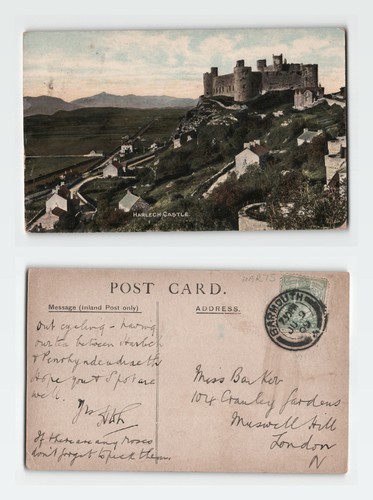 HARLECH CASTLE
HAR75
POST CARD.
Message (Inland Post only)
ADDRESS.
BARMOUTH
Out cycling - having
our tea between Harlech
& Penrhyndeudraeth
Hope you & Spot are
well.
Yrs
If there are any roses
don't forget to pick them
Miss Barker
104 Cranley Gardens
Muswell Hill
London
N